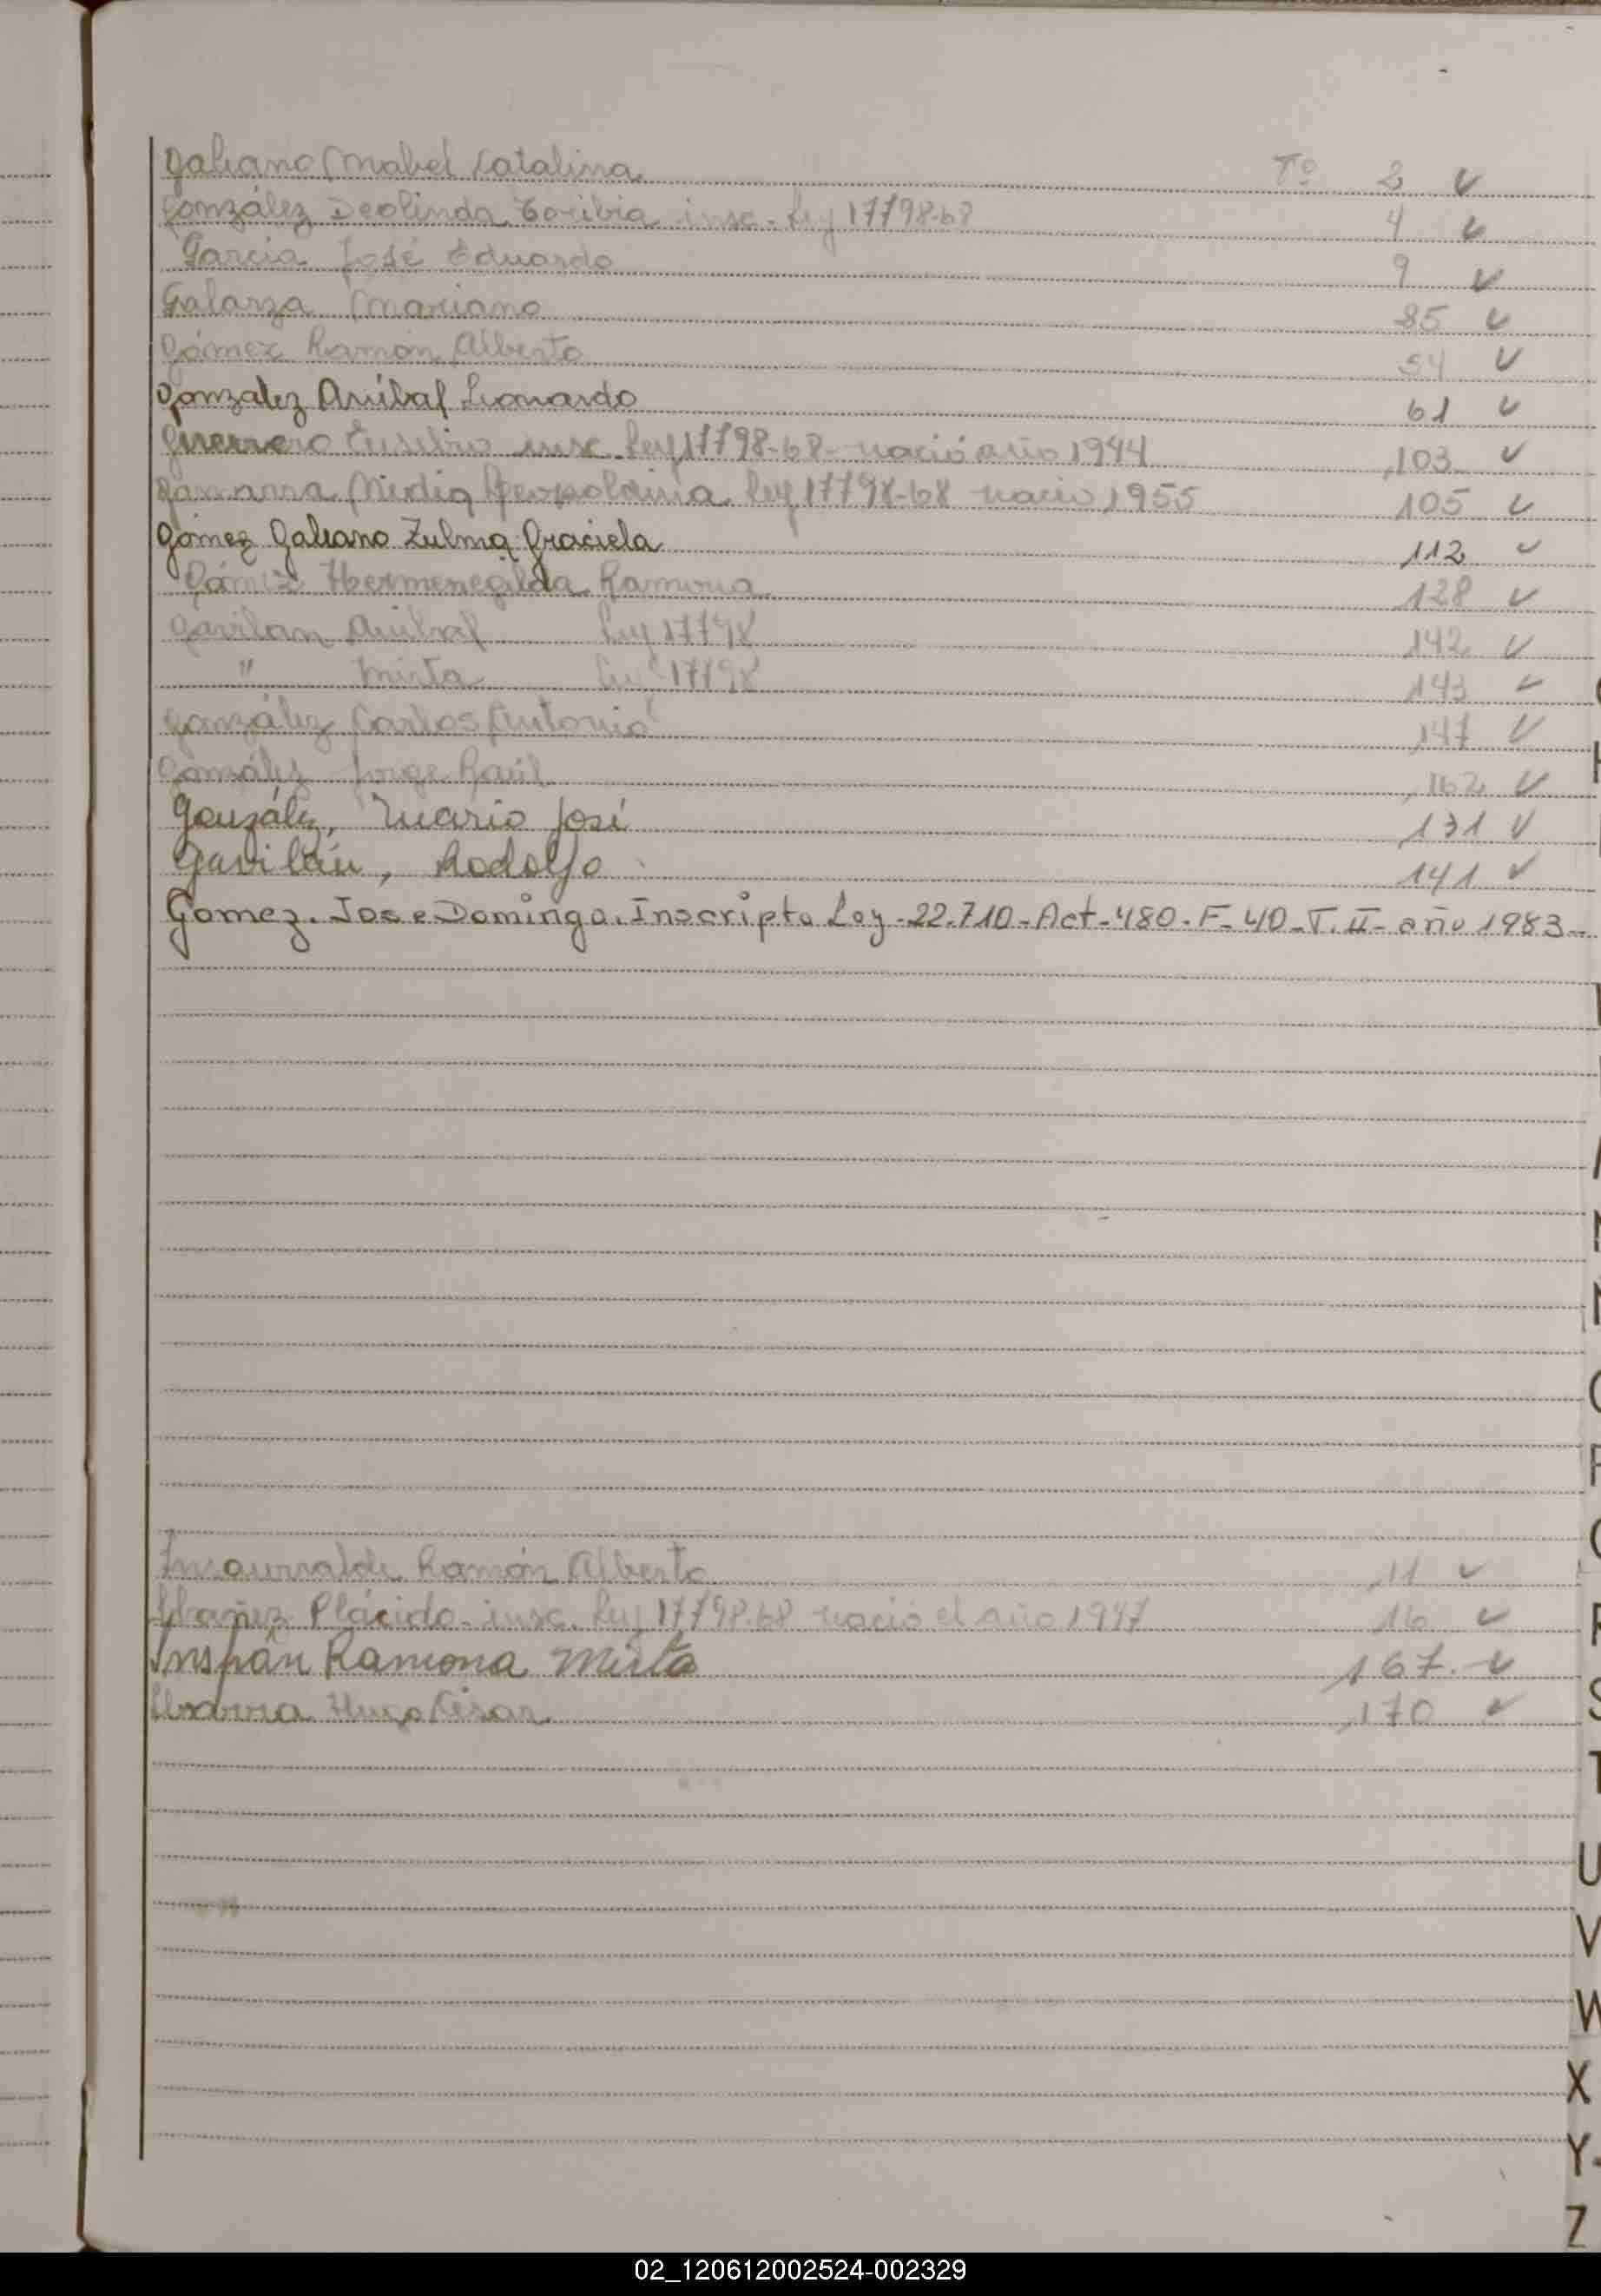 Galeano Mabel Catalina Tº 2
González Deolinda Toribia insc. Ley 17798-68 4
Garcia José Eduardo 9
Galarza Mariano 85
Gómez Ramón Alberto 54
Gonzalez Anibal Leonardo 61
Guerrero Eusebio insc. Ley 17798-68- nació año 1944 103
Gamarra Nidia Leopoldina Ley 17798-68 nacio 1955 105
Gómez Galeano Zulma Graciela 112
Gómez Hermenegilda Ramona 128
Gavilan Anibal Ley 17798 142
" Mirta Ley 17798 143
González Carlos Antonio 147
González Jorge Raúl 162
González, Mario José 131
Gavilán, Rodolfo 141
Gomez. Jose Domingo. Inscripto Ley-22.710-Act-480-F-40-T. II- año 1983-
Insaurralde Ramón Alberto 11
Ibañez Plácido- insc. Ley 17798-68 nació el año 1947 16
Inspán Ramona Mirta 167.
Ibarra Hugo César 170
O
P
Q
R
S
T
U
V
W
X
Y
Z
02_120612002524-002329